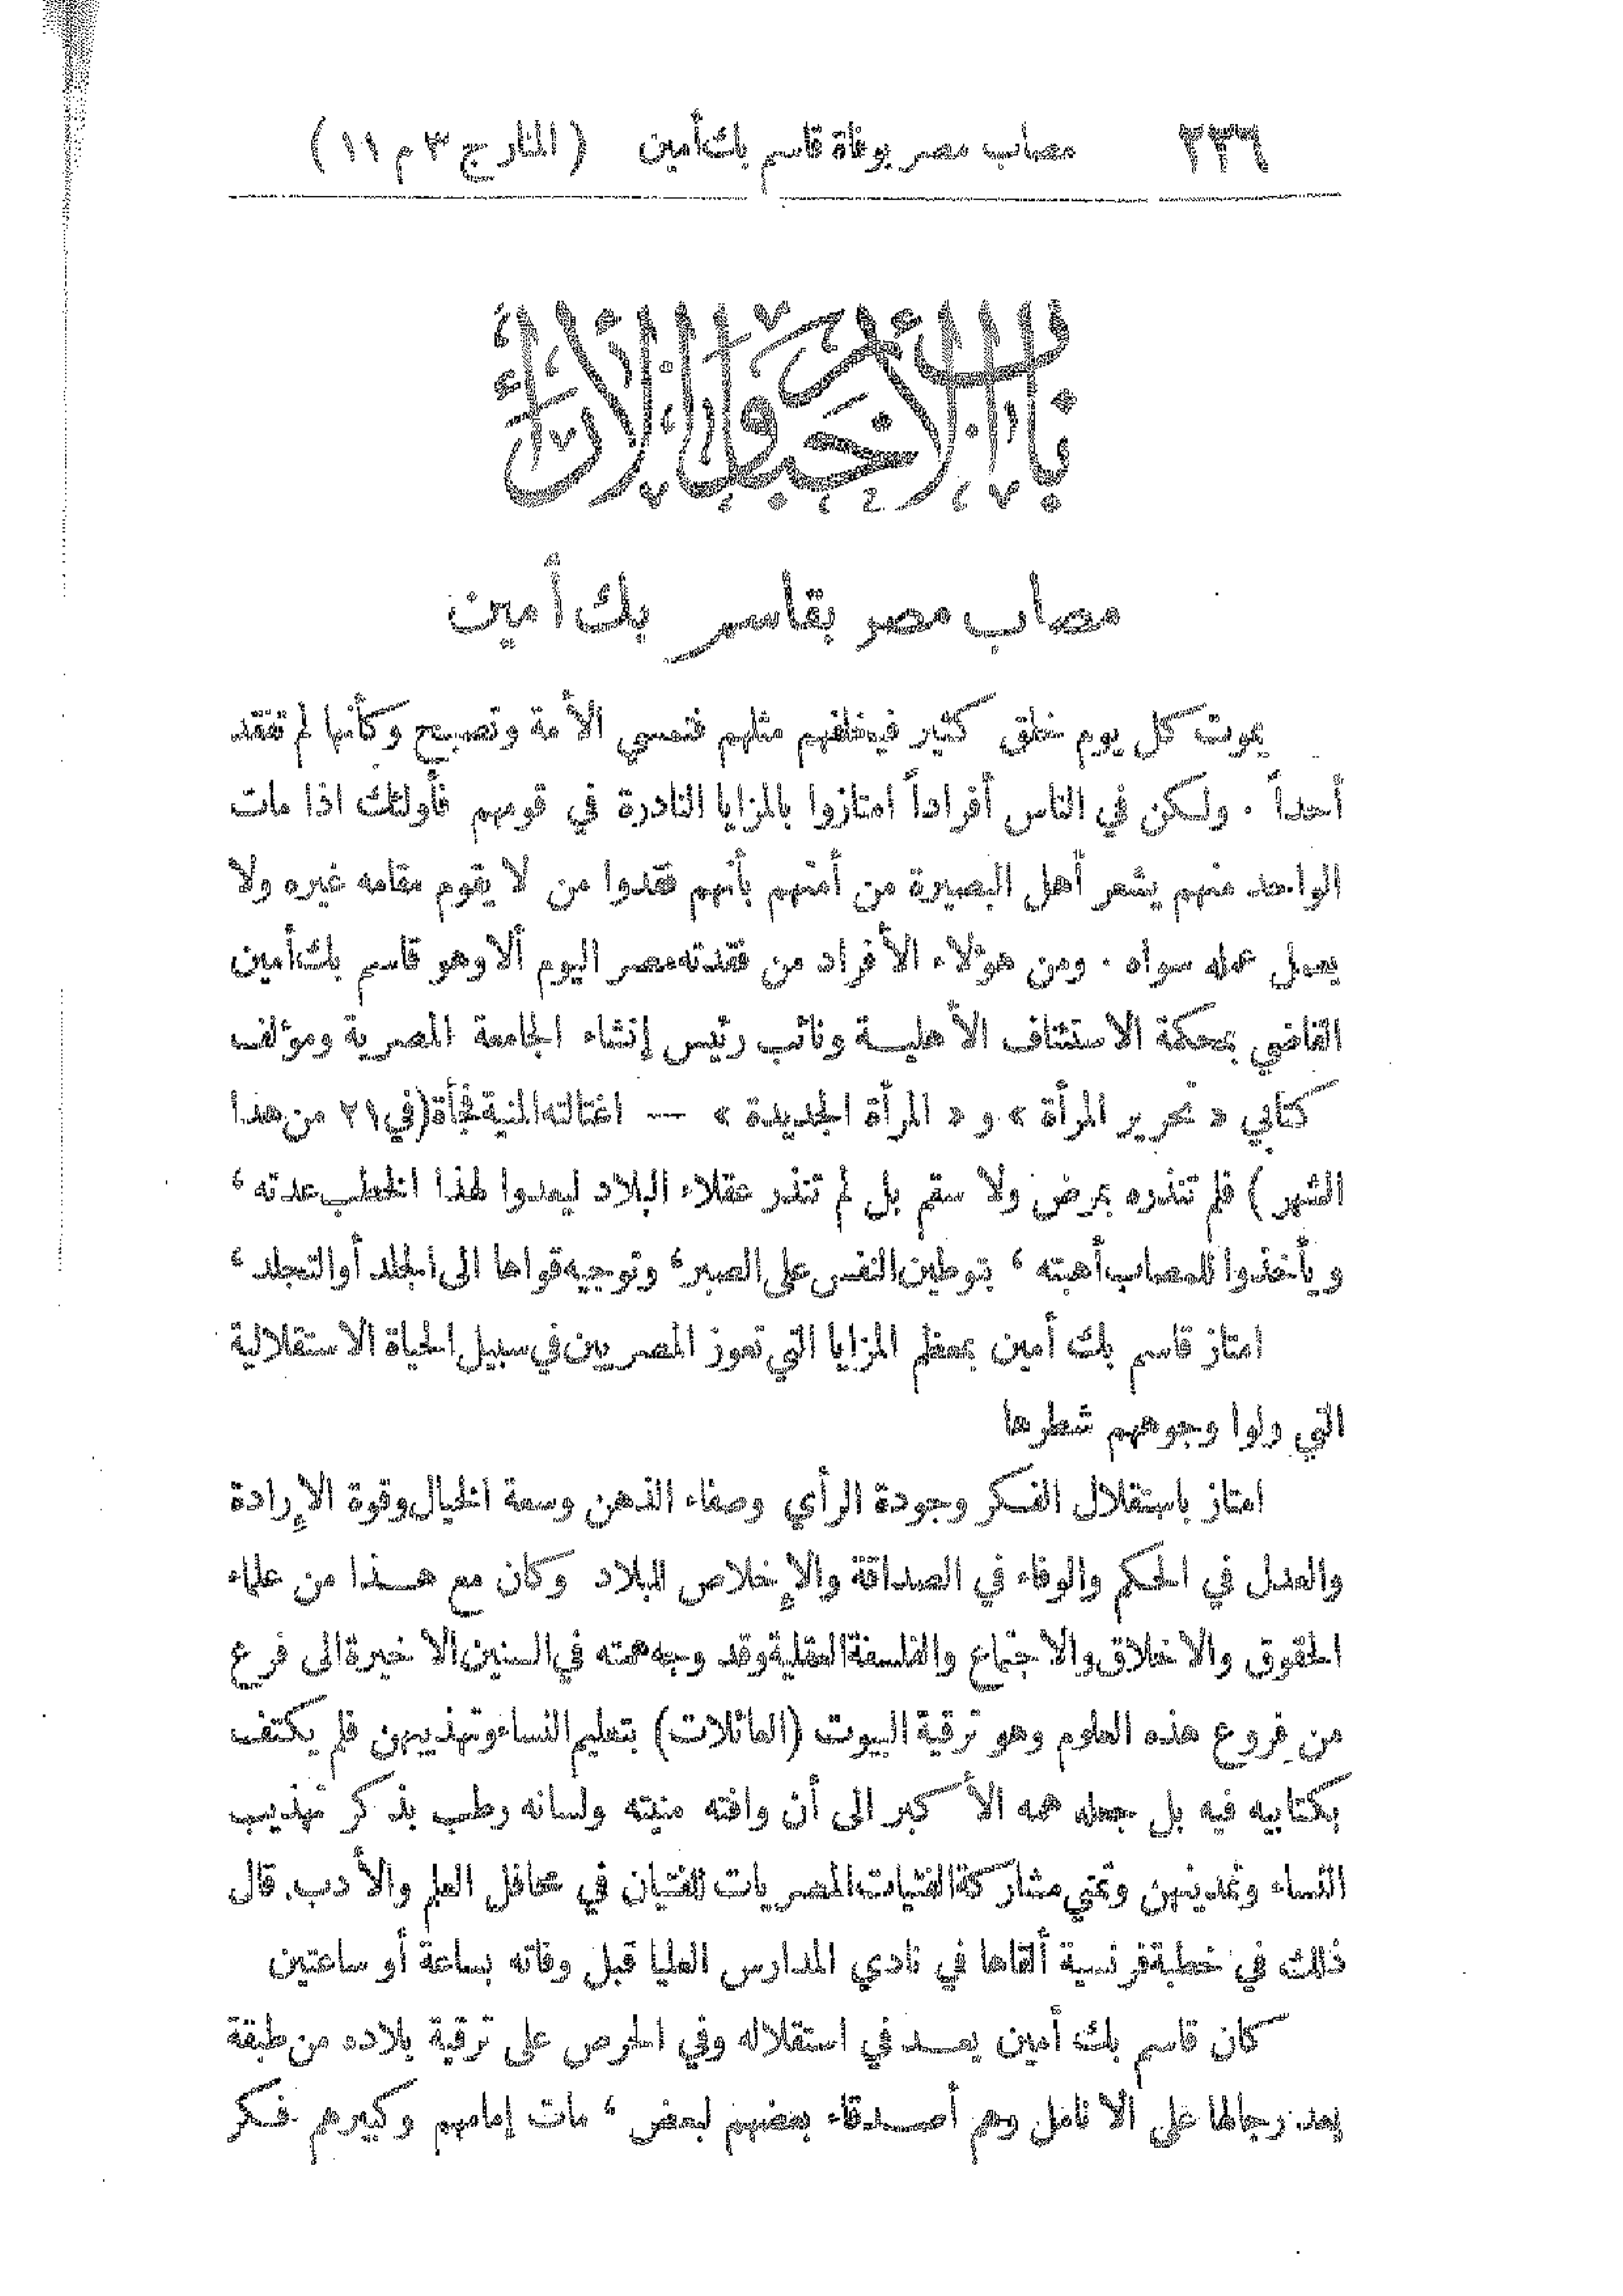 ٢٣٦ مصاب مصر بوفاة قاسم بك أمين ( المنار ج ٣ م ١١ )
باب الأخبار والآراء
مصاب مصر بقاسم بك أمين
يموت كل يوم خلق كثير فيخلفهم مثلهم فتمسي الأمة وتصبح وكأنها لم تفقد
أحداً . ولكن في الناس أفراداً امتازوا بالمزايا النادرة في قومهم فأولئك اذا مات
الواحد منهم يشعر أهل البصيرة من أمتهم بأنهم فقدوا من لا يقوم مقامه غيره ولا
يعمل عمله سواه . ومن هؤلاء الأفراد من فقدته مصر اليوم ألا وهو قاسم بك أمين
القاضي بمحكمة الاستئناف الأهلية ونائب رئيس إنشاء الجامعة المصرية ومؤلف
كتابي « تحرير المرأة » و « المرأة الجديدة » — اغتالته المنية فجأة (في ٢١ من هذا
الشهر ) فلم تنذره بمرض ولا سقم بل لم تنذر عقلاء البلاد ليعدوا لهذا الخطب عدته ،
ويأخذوا للمصاب أهبته ، بتوطين النفس على الصبر، وتوجيه قواها الى الجلد أو التجلد ،
امتاز قاسم بك أمين بمعظم المزايا التي تعوز المصريين في سبيل الحياة الاستقلالية
التي ولوا وجوههم شطرها
امتاز باستقلال الفكر وجودة الرأي وصفاء الذهن وسعة الخيال وقوة الإرادة
والعدل في الحكم والوفاء في الصداقة والإخلاص للبلاد وكان مع هذا من علماء
الحقوق والاخلاق والاجتماع والفلسفة العقلية وقد وجه همته في السنين الاخيرة الى فرع
من فروع هذه العلوم وهو ترقية البيوت (العائلات) بتعليم النساء وتهذيبهن فلم يكتف
بكتابيه فيه بل جعله همه الأكبر الى أن وافته منيته ولسانه رطب بذكر تهذيب
النساء وتمدينهن وتمني مشاركة الفتيات المصريات للفتيان في محافل العلم والأدب. قال
ذلك في خطبة فرنسية ألقاها في نادي المدارس العليا قبل وفاته بساعة أو ساعتين
كان قاسم بك أمين يعد في استقلاله وفي الحرص على ترقية بلاده من طبقة
يعد رجالها على الانامل وهم أصدقاء بعضهم لبعض ، مات إمامهم وكبيرهم فكر